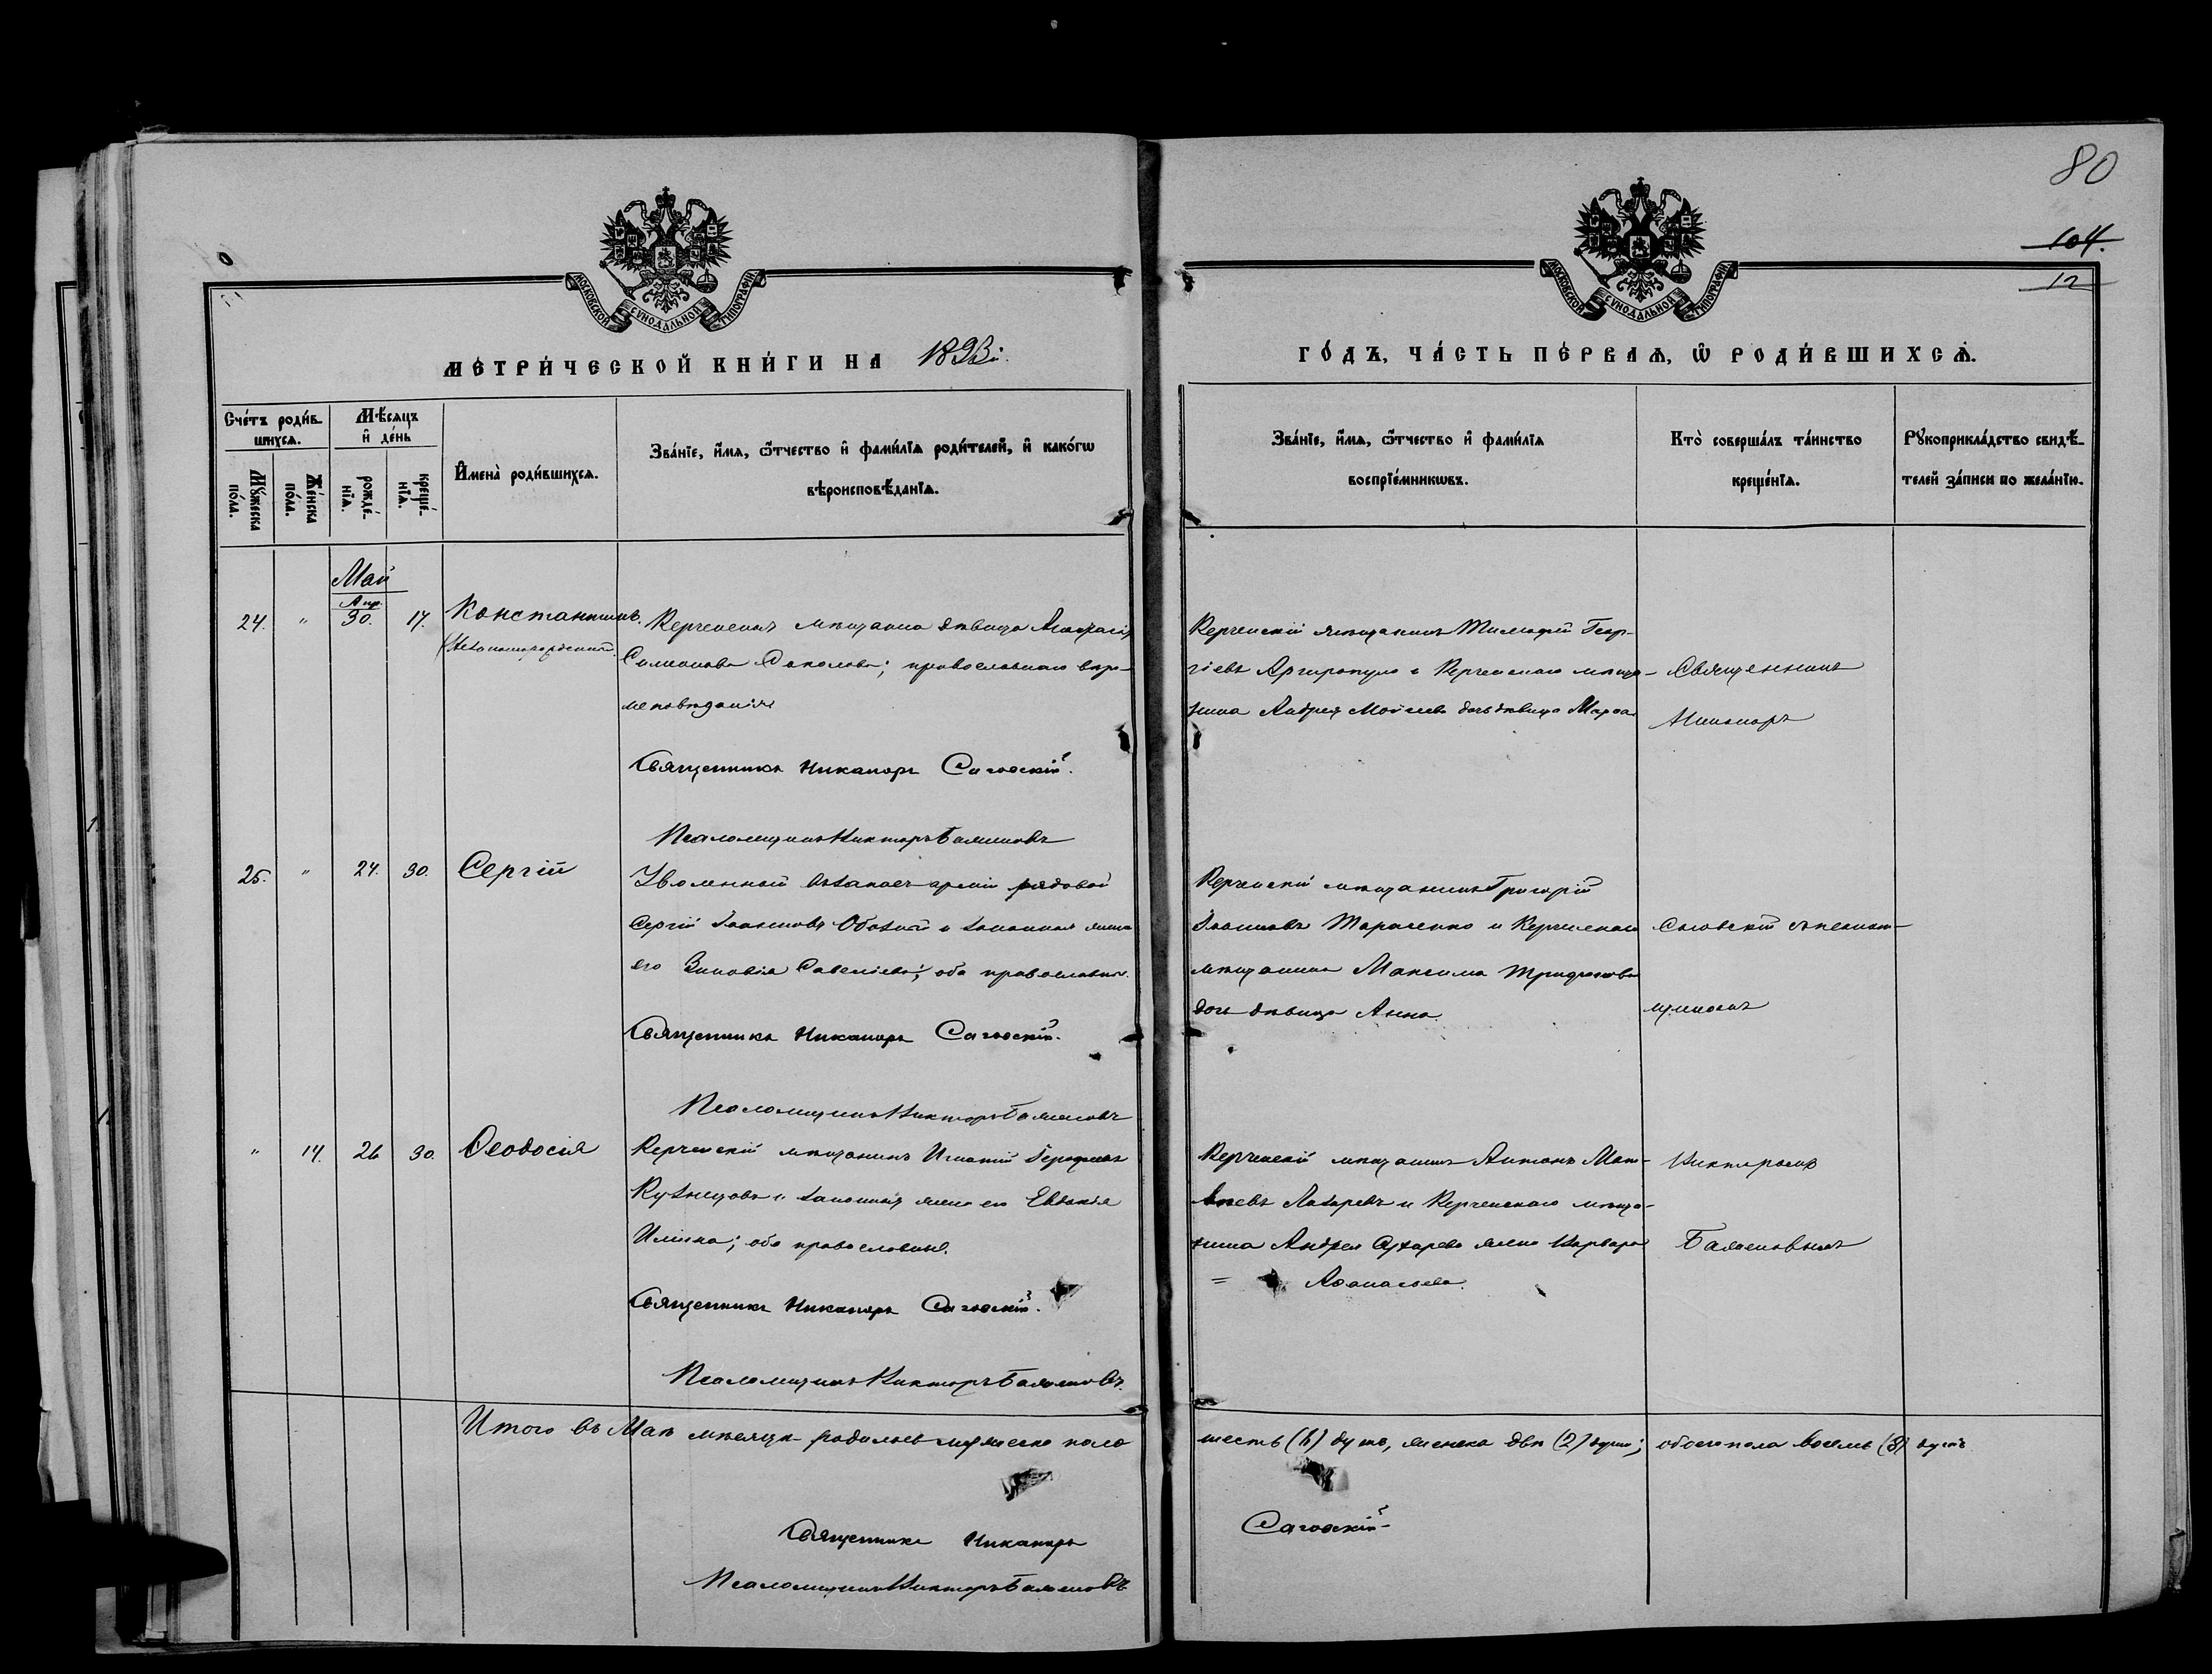 80
104.
12
МОСКОВСКОЙ СѴНОДАЛЬНОЙ ТИПОГРАФІИ
МОСКОВСКОЙ СѴНОДАЛЬНОЙ ТИПОГРАФІИ
МЕТРИ́ЧЕСКОЙ КНИ́ГИ НА 1893й.
ГО́ДЪ, ЧА́СТЬ ПЕ́РВАѦ, Ѡ РОДИ́ВШИХСѦ.
Сче́тъ роди́в-
шихсѧ.
Мѣ́сѧцъ
и҆ де́нь
Мꙋ́жеска
по́ла.
Же́нска
по́ла.
рожде́-
нїѧ.
креще́-
нїѧ.
И҆мена̀ роди́вшихсѧ.
Зва́нїе, и҆́мѧ, ѻ҆́тчество и҆ фами́лїѧ роди́телей, и҆ како́гѡ
вѣроисповѣ́данїѧ.
Зва́нїе, и҆́мѧ, ѻ҆́тчество и҆ фами́лїѧ
воспрїе́мникѡвъ.
Кто̀ соверша́лъ та́инство
креще́нїѧ.
Рꙋкоприкла́дство свидѣ́-
телей за́писи по жела́нїю.
Май
Апр.
24. " 30. 17. Константинъ.
(Незаконнорожденный)
Керченская мѣщанка дѣвица
Симонова Соколова; православнаго вѣро-
исповѣданія
Священникъ Никаноръ Саговскій.
Псаломщикъ Викторъ Баженовъ
Керченскій мѣщанинъ Тимофей Геор-
гіевъ Аргиропуло и Керченскаго мѣща-
нина Андрея Моисеева дочь дѣвица
Священникъ
Никаноръ
25. " 24. 30. Сергій
Уволенный въ запасъ арміи рядовой
Сергій Іоанновъ и законная жена
его Зиновія Савеліева; оба православные.
Священникъ Никаноръ Саговскій.
Псаломщикъ Викторъ Баженовъ
Керченскій мѣщанинъ Григорій
Іоанновъ Тарасенко и Керченскаго
мѣщанина Максима
дочь дѣвица Анна
Саговскій съ псалом-
щикомъ
" 14. 26 30. Ѳеодосія
Керченскій мѣщанинъ Игнатій
Кузнецовъ и законная жена его Евдокія
Ильина; оба православные.
Священникъ Никаноръ Саговскій.
Псаломщикъ Викторъ Баженовъ.
Керченскій мѣщанинъ Антонъ Мат-
вѣевъ Лазаревъ и Керченскаго мѣща-
нина Андрея Сухарева жена Варвара
= Аѳанасьева.
Викторомъ
Баженовымъ
Итого въ Маѣ мѣсяцѣ родилось мужеска пола
шесть (6) душъ, женска двѣ (2) души; обоего пола восемь (8) душъ
Священникъ Никаноръ
Саговскій
Псаломщикъ Викторъ Баженовъ